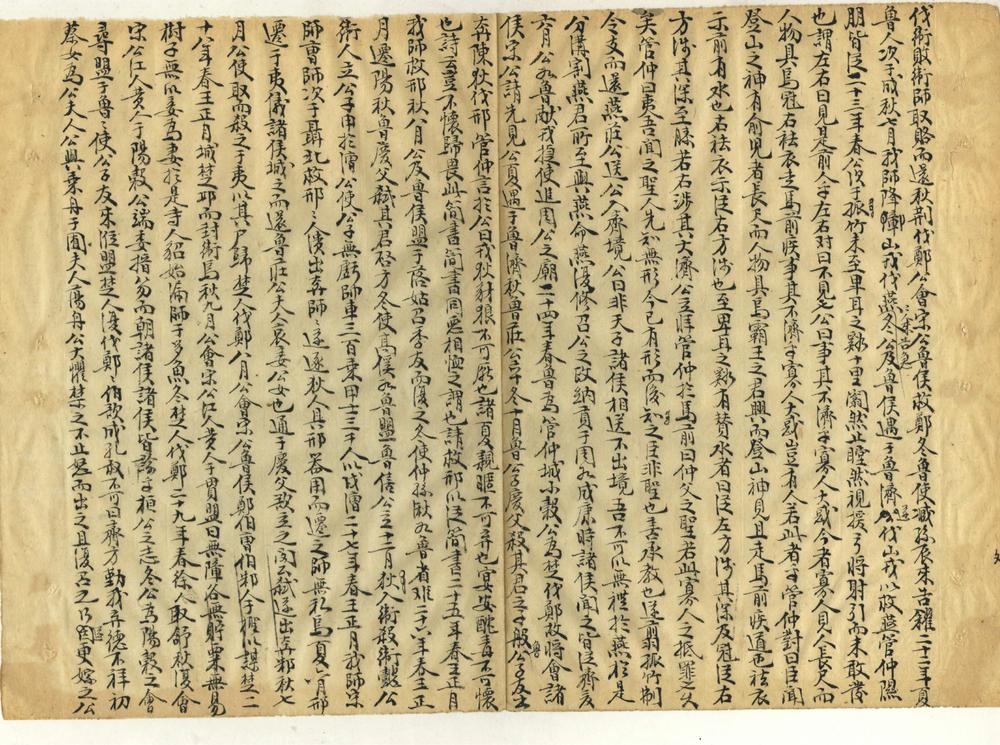 伐衛敗衛師取賂而還秋荆伐鄭公會宋公魯侯救鄭冬魯使臧孫辰來告糴二十二年夏
魯人次于成秋七月我師降鄣山戎伐燕以來告急冬公及魯侯遇于魯濟遂伐山戎以救燕管仲隰
朋皆從二十三年春公次于孤竹未至卑耳之谿十里闟然止瞠然視援弓將射引而未敢發
也謂左右曰見是前人乎左右對曰不見也公曰事其不濟乎寡人大惑今者寡人見人長尺而
人物具焉冠右袪衣走馬前疾事其不濟乎寡人大惑豈有人若此者乎管仲對曰臣聞
登山之神有俞兒者長尺而人物具焉霸王之君興而登山神見且走馬前疾道也袪衣
示前有水也右袪衣示從右方涉也至卑耳之谿有贊水者曰從左方涉其深及冠從右
方涉其深至膝若右涉其大濟公立拜管仲於馬前曰仲父之聖若此寡人之抵罪也久
矣管仲曰夷吾聞之聖人先知無形今已有形而後知之臣非聖也善承教也遂翦孤竹制
令支而還燕莊公送公入齊境公曰非天子諸侯相送不出境吾不可以無禮於燕於是
分溝割燕君所至與燕命燕復修召公之政納貢于周如成康時諸侯聞之皆從齊夏
六月公如魯獻戎捷使進周公之廟二十四年春魯為管仲城小穀公為楚伐鄭故將會諸
侯宋公請先見公夏遇于魯濟秋魯莊公卒冬十月魯公子慶父殺其君之子般公子友
奔陳狄伐邢管仲言於公曰戎狄豺狼不可厭也諸夏親暱不可弃也宴安酖毒不可懷
也詩云豈不懷歸畏此簡書簡書同惡相恤之謂也請救邢以從簡書二十五年春王正月
我師救邢秋八月公及魯侯盟于落姑召季友而復之冬使仲孫湫如魯省難二十六年春王正
月遷陽秋魯慶父弒其君啓方冬使高傒如魯盟魯僖公立十二月狄入衛殺衛懿公
衛人立公子申於漕公使公子無虧帥車三百乘甲士三千人以戍漕二十七年春王正月我師宋
師曹師次于聶北救邢邢潰出奔師師遂逐狄人具邢器用而遷之師無私焉夏六月邢
遷于夷儀諸侯城之而還魯莊公夫人哀姜公女也通于慶父故立之閔公弒遂出奔邾秋七
月公使取而殺之于夷以其尸歸楚人伐鄭八月公會宋公魯侯鄭伯曹伯邾人于檉謀楚二
十八年春王正月城楚丘而封衛焉秋九月公會宋公江人黄人于貫盟曰無障谷無貯粟無易
樹子無以妾為妻於是寺人貂始漏師于多魚冬楚人伐鄭二十九年春徐人取舒秋復會
宋公江人黄人于陽穀公端委搢笏而朝諸侯諸侯皆諭于桓公之志冬公為陽穀之會
尋盟于魯魯使公子友來涖盟楚人復伐鄭鄭伯欲成孔叔不可曰齊方勤我弃德不祥初
蔡女為公夫人公與乘舟于囿夫人蕩舟公大懼禁之不止怒而出之且復召之乃更嫁之公